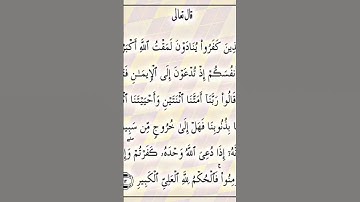 قال تعالى
ذِينَ كَفَرُوا۟ يُنَادَوْنَ لَمَقْتُ ٱللَّهِ أَكْبَرُ
نفُسَكُمْ إِذْ تُدْعَوْنَ إِلَى ٱلْإِيمَـٰنِ فَتَ
قَالُوا۟ رَبَّنَآ أَمَتَّنَا ٱثْنَتَيْنِ وَأَحْيَيْتَنَا
ا بِذُنُوبِنَا فَهَلْ إِلَىٰ خُرُوجٍ مِّن سَبِيلٍ
هُۥٓ إِذَا دُعِىَ ٱللَّهُ وَحْدَهُۥ كَفَرْتُمْ وَإِ
ؤْمِنُوا۟ ۚ فَٱلْحُكْمُ لِلَّهِ ٱلْعَلِىِّ ٱلْكَبِيرِ